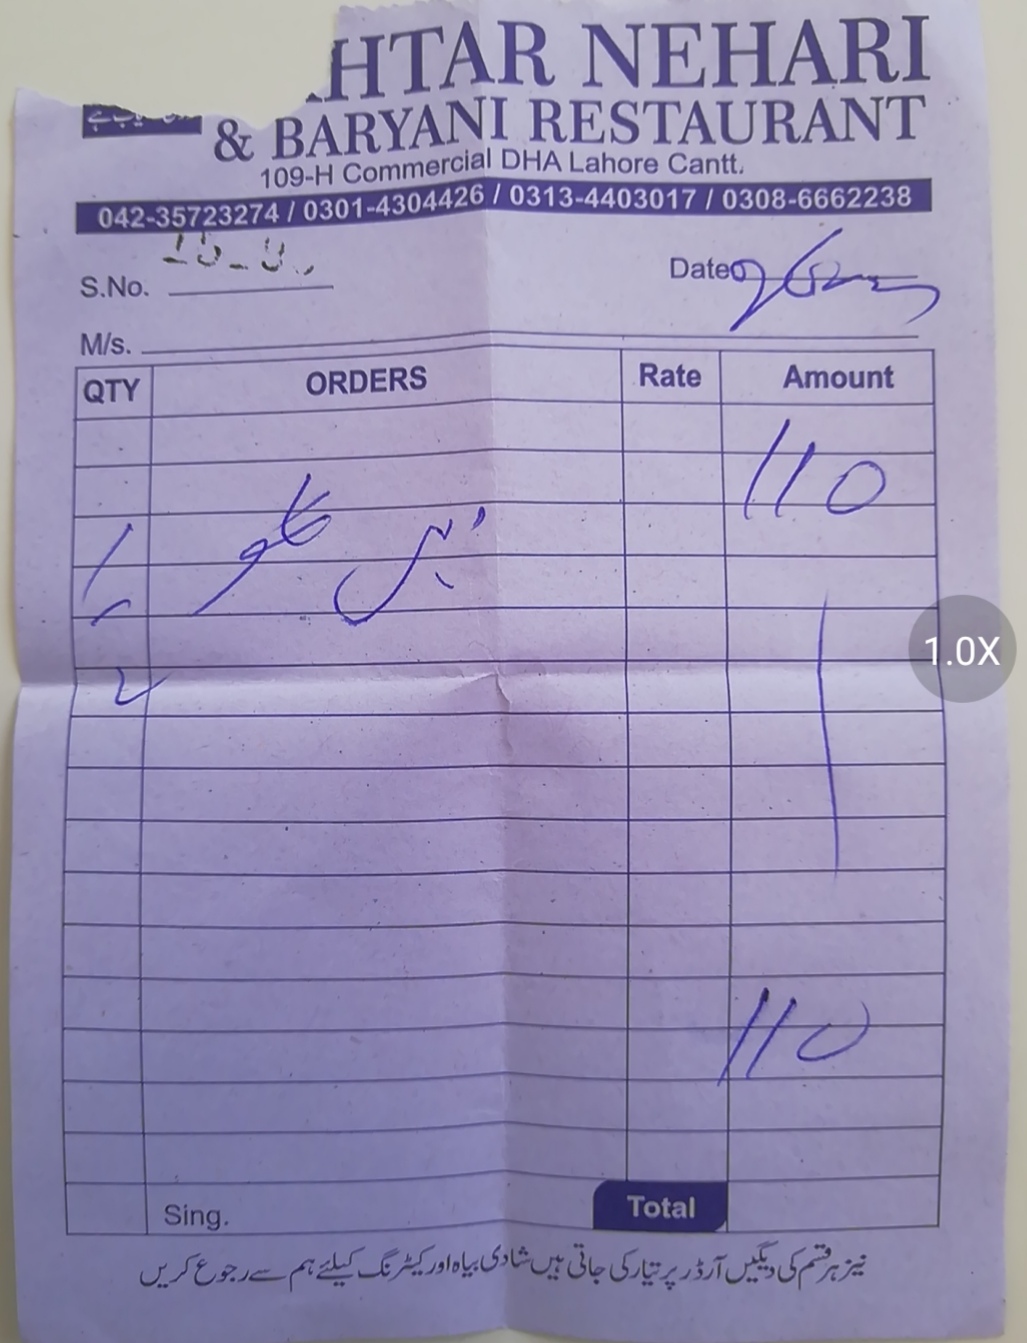 HTAR NEHARI
& BARYANI RESTAURANT
109-H Commercial DHA Lahore Cantt.
042-35723274 / 0301-4304426 / 0313-4403017 / 0308-6662238
S.No.
Date
M/s.
QTY ORDERS Rate Amount
110
110
Sing. Total
نیز ہر قسم کی دیگیں آرڈر پر تیار کی جاتی ہیں شادی بیاہ اور کیٹرنگ کیلئے ہم سے رجوع کریں
1.0X